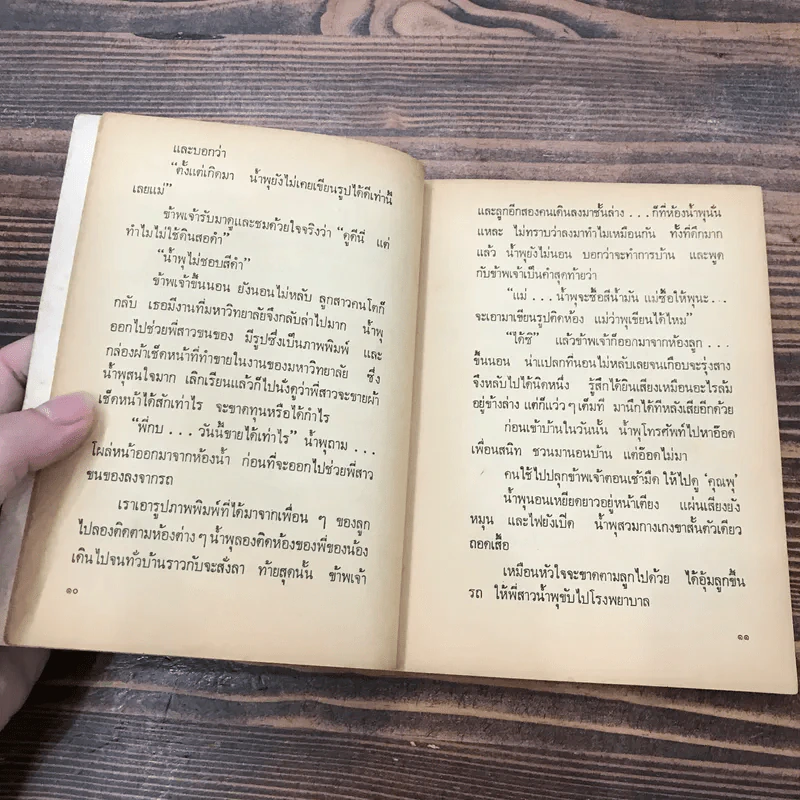 และบอกว่า
“ตั้งแต่เกิดมา น้ำพุยังไม่เคยเขียนรูปได้ดีเท่านี้
เลยแม่”
ข้าพเจ้ารับมาดูและชมด้วยใจจริงว่า “ดูดีนี่ แต่
ทำไมไม่ใช้ดินสอดำ”
“น้ำพุไม่ชอบสีดำ”
ข้าพเจ้าขึ้นนอน ยังนอนไม่หลับ ลูกสาวคนโตก็
กลับ เธอมีงานที่มหาวิทยาลัยจึงกลับล่าไปมาก น้ำพุ
ออกไปช่วยพี่สาวขนของ มีรูปซึ่งเป็นภาพพิมพ์ และ
กล่องผ้าเช็ดหน้าที่ทำขายในงานของมหาวิทยาลัย ซึ่ง
น้ำพุสนใจมาก เลิกเรียนแล้วก็ไปนั่งดูว่าพี่สาวจะขายผ้า
เช็ดหน้าได้สักเท่าไร จะขาดทุนหรือได้กำไร
“พี่กบ ... วันนี้ขายได้เท่าไร” น้ำพุถาม ...
โผล่หน้าออกมาจากห้องน้ำ ก่อนที่จะออกไปช่วยพี่สาว
ขนของลงจากรถ
เราเอารูปภาพพิมพ์ที่ได้มาจากเพื่อน ๆ ของลูก
ไปลองติดตามห้องต่าง ๆ น้ำพุลองติดห้องของพี่ของน้อง
เดินไปจนทั่วบ้านราวกับจะสั่งลา ท้ายสุดนั้น ข้าพเจ้า
๑๐
และลูกอีกสองคนเดินลงมาชั้นล่าง ... ก็ที่ห้องน้ำพุนั่น
แหละ ไม่ทราบว่าลงมาทำไมเหมือนกัน ทั้งที่ดึกมาก
แล้ว น้ำพุยังไม่นอน บอกว่าจะทำการบ้าน และพูด
กับข้าพเจ้าเป็นคำสุดท้ายว่า
“แม่ ... น้ำพุจะซื้อสีน้ำมัน แม่ซื้อให้พุนะ ...
จะเอามาเขียนรูปติดห้อง แม่ว่าพุเขียนได้ไหม”
“ได้ซิ” แล้วข้าพเจ้าก็ออกมาจากห้องลูก ...
ขึ้นนอน น่าแปลกที่นอนไม่หลับเลยจนเกือบจะรุ่งสาง
จึงหลับไปได้นิดหนึ่ง รู้สึกได้ยินเสียงเหมือนอะไรล้ม
อยู่ข้างล่าง แต่ก็แว่ว ๆ เต็มที มานึกได้ทีหลังเสียอีกด้วย
ก่อนเข้าบ้านในวันนั้น น้ำพุโทรศัพท์ไปหาอ๊อด
เพื่อนสนิท ชวนมานอนบ้าน แต่อ๊อดไม่มา
คนใช้ไปปลุกข้าพเจ้าตอนเช้ามืด ให้ไปดู ‘คุณพุ’
น้ำพุนอนเหยียดยาวอยู่หน้าเตียง แผ่นเสียงยัง
หมุน และไฟยังเปิด น้ำพุสวมกางเกงขาสั้นตัวเดียว
ถอดเสื้อ
เหมือนหัวใจจะขาดตามลูกไปด้วย ได้อุ้มลูกขึ้น
รถ ให้พี่สาวน้ำพุขับไปโรงพยาบาล
๑๑